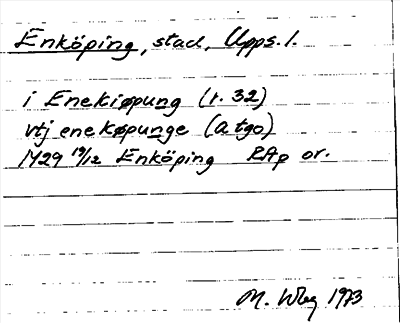 Enköping, stad, Upps. l.
i Enekiøpung (r. 32)
vtj enekøpunge (atgo)
1429 19/12 Enköping RAp or.
M. Wbg 1973